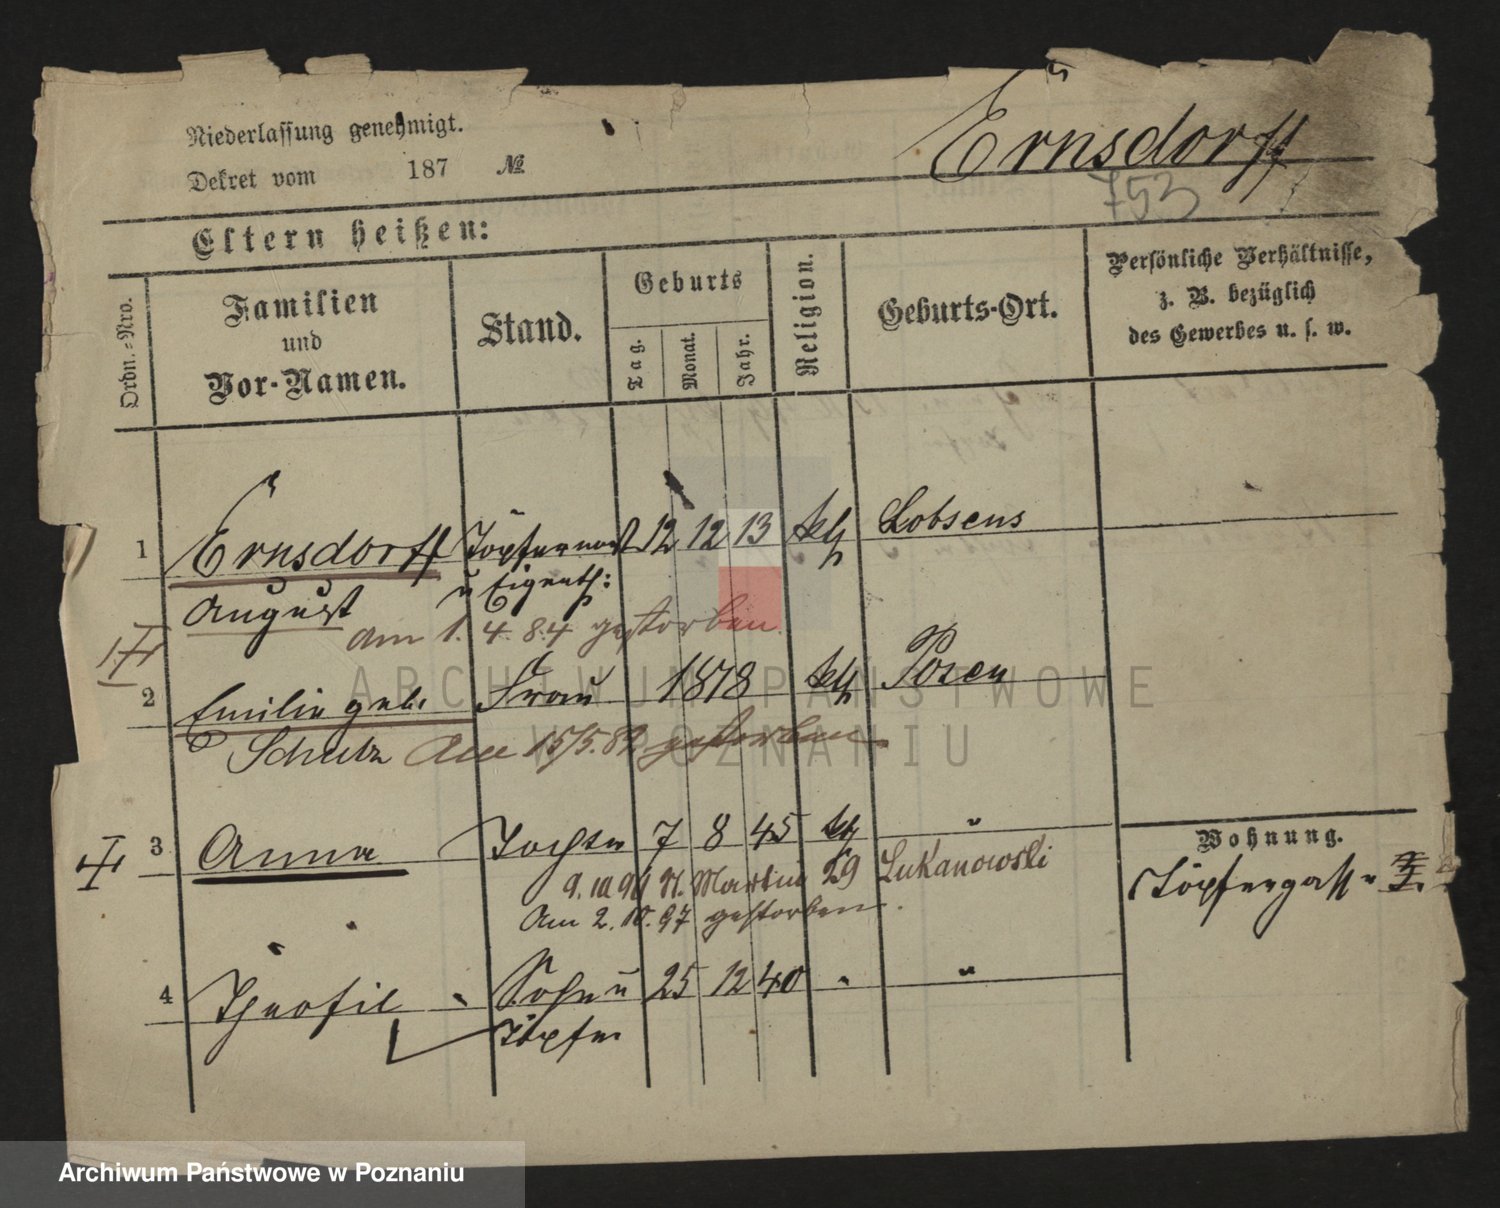 Niederlassung genehmigt.
Dekret vom 187 №
Ernsdorff
753
Eltern heißen:
Ordn.-Nro.
Familien und Vor-Namen.
Stand.
Geburts
Tag.
Monat.
Jahr.
Religion.
Geburts-Ort.
Persönliche Verhältnisse,
z. B. bezüglich
des Gewerbes u. s. w.
1 Ernsdorff Töpfermst 12 12 13 kth Lobsens
August u Eigenth:
am 1. 4. 84 gestorben.
2 Emilie geb. Frau 1818 kth Posen
Schulz Am 15/5. 82 gestorben
3 Anna Tochter 7 8 45 kth "
9. 10. 90 St. Martin 29 Lukanowski
Am 2. 10. 97 gestorben.
Wohnung.
Töpfergasse 2.
4 Theofil Sohn u 25 12 40 " "
Töpfer
Archiwum Państwowe
w Poznaniu
Archiwum Państwowe w Poznaniu